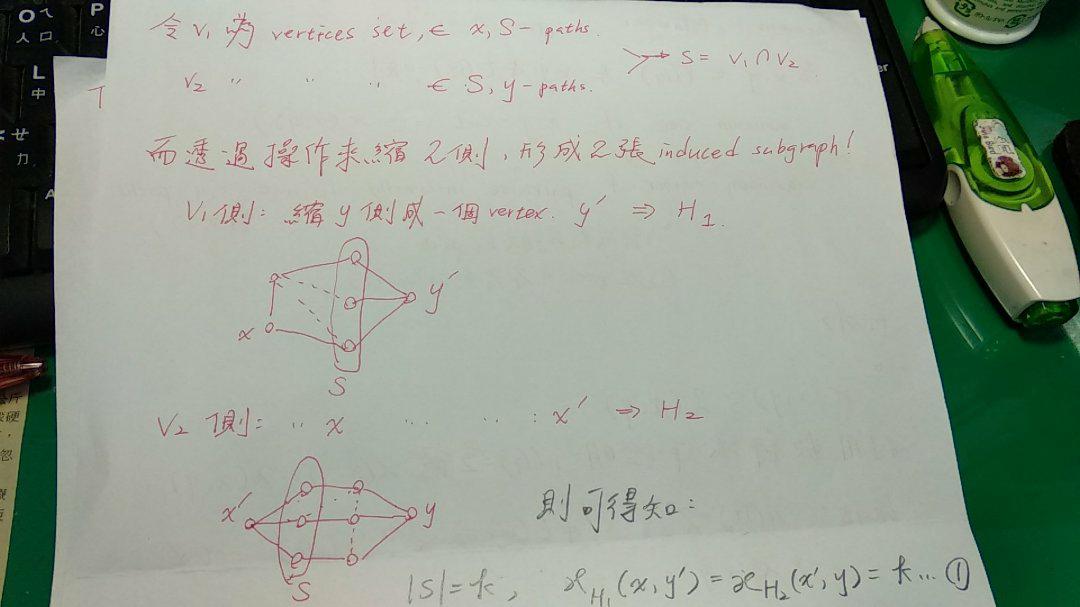 令 V₁ 為 vertices set, ∈ x, S-paths.
V₂ 〃 〃 〃 ∈ S, y-paths.
S = V₁ ∩ V₂
而透過操作來縮 2 側, 形成 2 張 induced subgraph!
V₁ 側: 縮 y 側成一個 vertex. y′ ⇒ H₁.
x
y′
S
V₂ 側: 〃 x 〃 〃 : x′ ⇒ H₂
x′
y
S
則可得知:
|S| = k, κ_H₁(x, y′) = κ_H₂(x′, y) = k … ①
O ㄟ
人 ㄇ
P
心
L
中
ㄘ
A